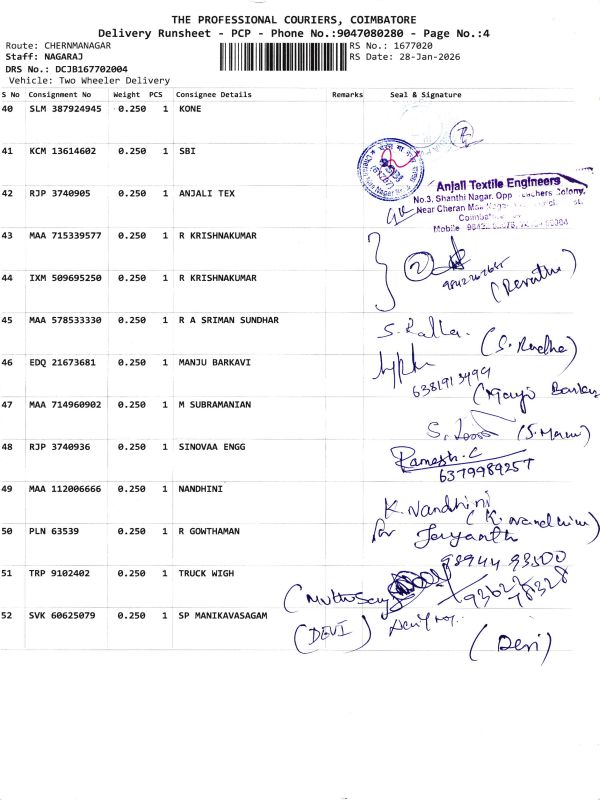 THE PROFESSIONAL COURIERS, COIMBATORE
Delivery Runsheet - PCP - Phone No.:9047080280 - Page No.:4
Route: CHERNMANAGAR RS No.: 1677020
Staff: NAGARAJ RS Date: 28-Jan-2026
DRS No.: DCJB167702004
Vehicle: Two Wheeler Delivery
S No Consignment No Weight PCS Consignee Details Remarks Seal & Signature
40 SLM 387924945 0.250 1 KONE
41 KCM 13614602 0.250 1 SBI
Anjali Textile Engineers
42 RJP 3740905 0.250 1 ANJALI TEX
No.3, Shanthi Nagar, Opp Teachers Colony,
Near Cheran
Mobile
43 MAA 715339577 0.250 1 R KRISHNAKUMAR
44 IXM 509695250 0.250 1 R KRISHNAKUMAR
(Revathi)
45 MAA 578533330 0.250 1 R A SRIMAN SUNDHAR
(S. Radha)
46 EDQ 21673681 0.250 1 MANJU BARKAVI
6381913499
(Manju Barkavi
47 MAA 714960902 0.250 1 M SUBRAMANIAN
48 RJP 3740936 0.250 1 SINOVAA ENGG
Ramesh.C
6379989257
49 MAA 112006666 0.250 1 NANDHINI
K. Nandhini
(K. Nandhini)
50 PLN 63539 0.250 1 R GOWTHAMAN
for Jayanth
98944 93500
51 TRP 9102402 0.250 1 TRUCK WIGH
93622
78328
52 SVK 60625079 0.250 1 SP MANIKAVASAGAM
(DEVI)
(Devi)